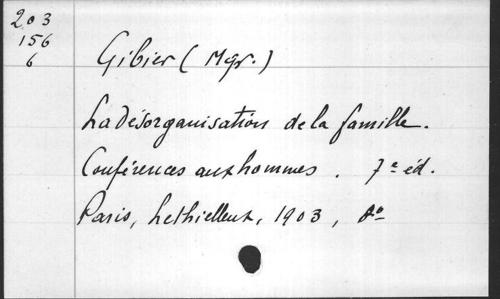 203
156
6
Gibier (Mgr.)
La désorganisation de la famille.
Conférences aux hommes. 7e éd.
Paris, Lethielleux, 1903, 8o